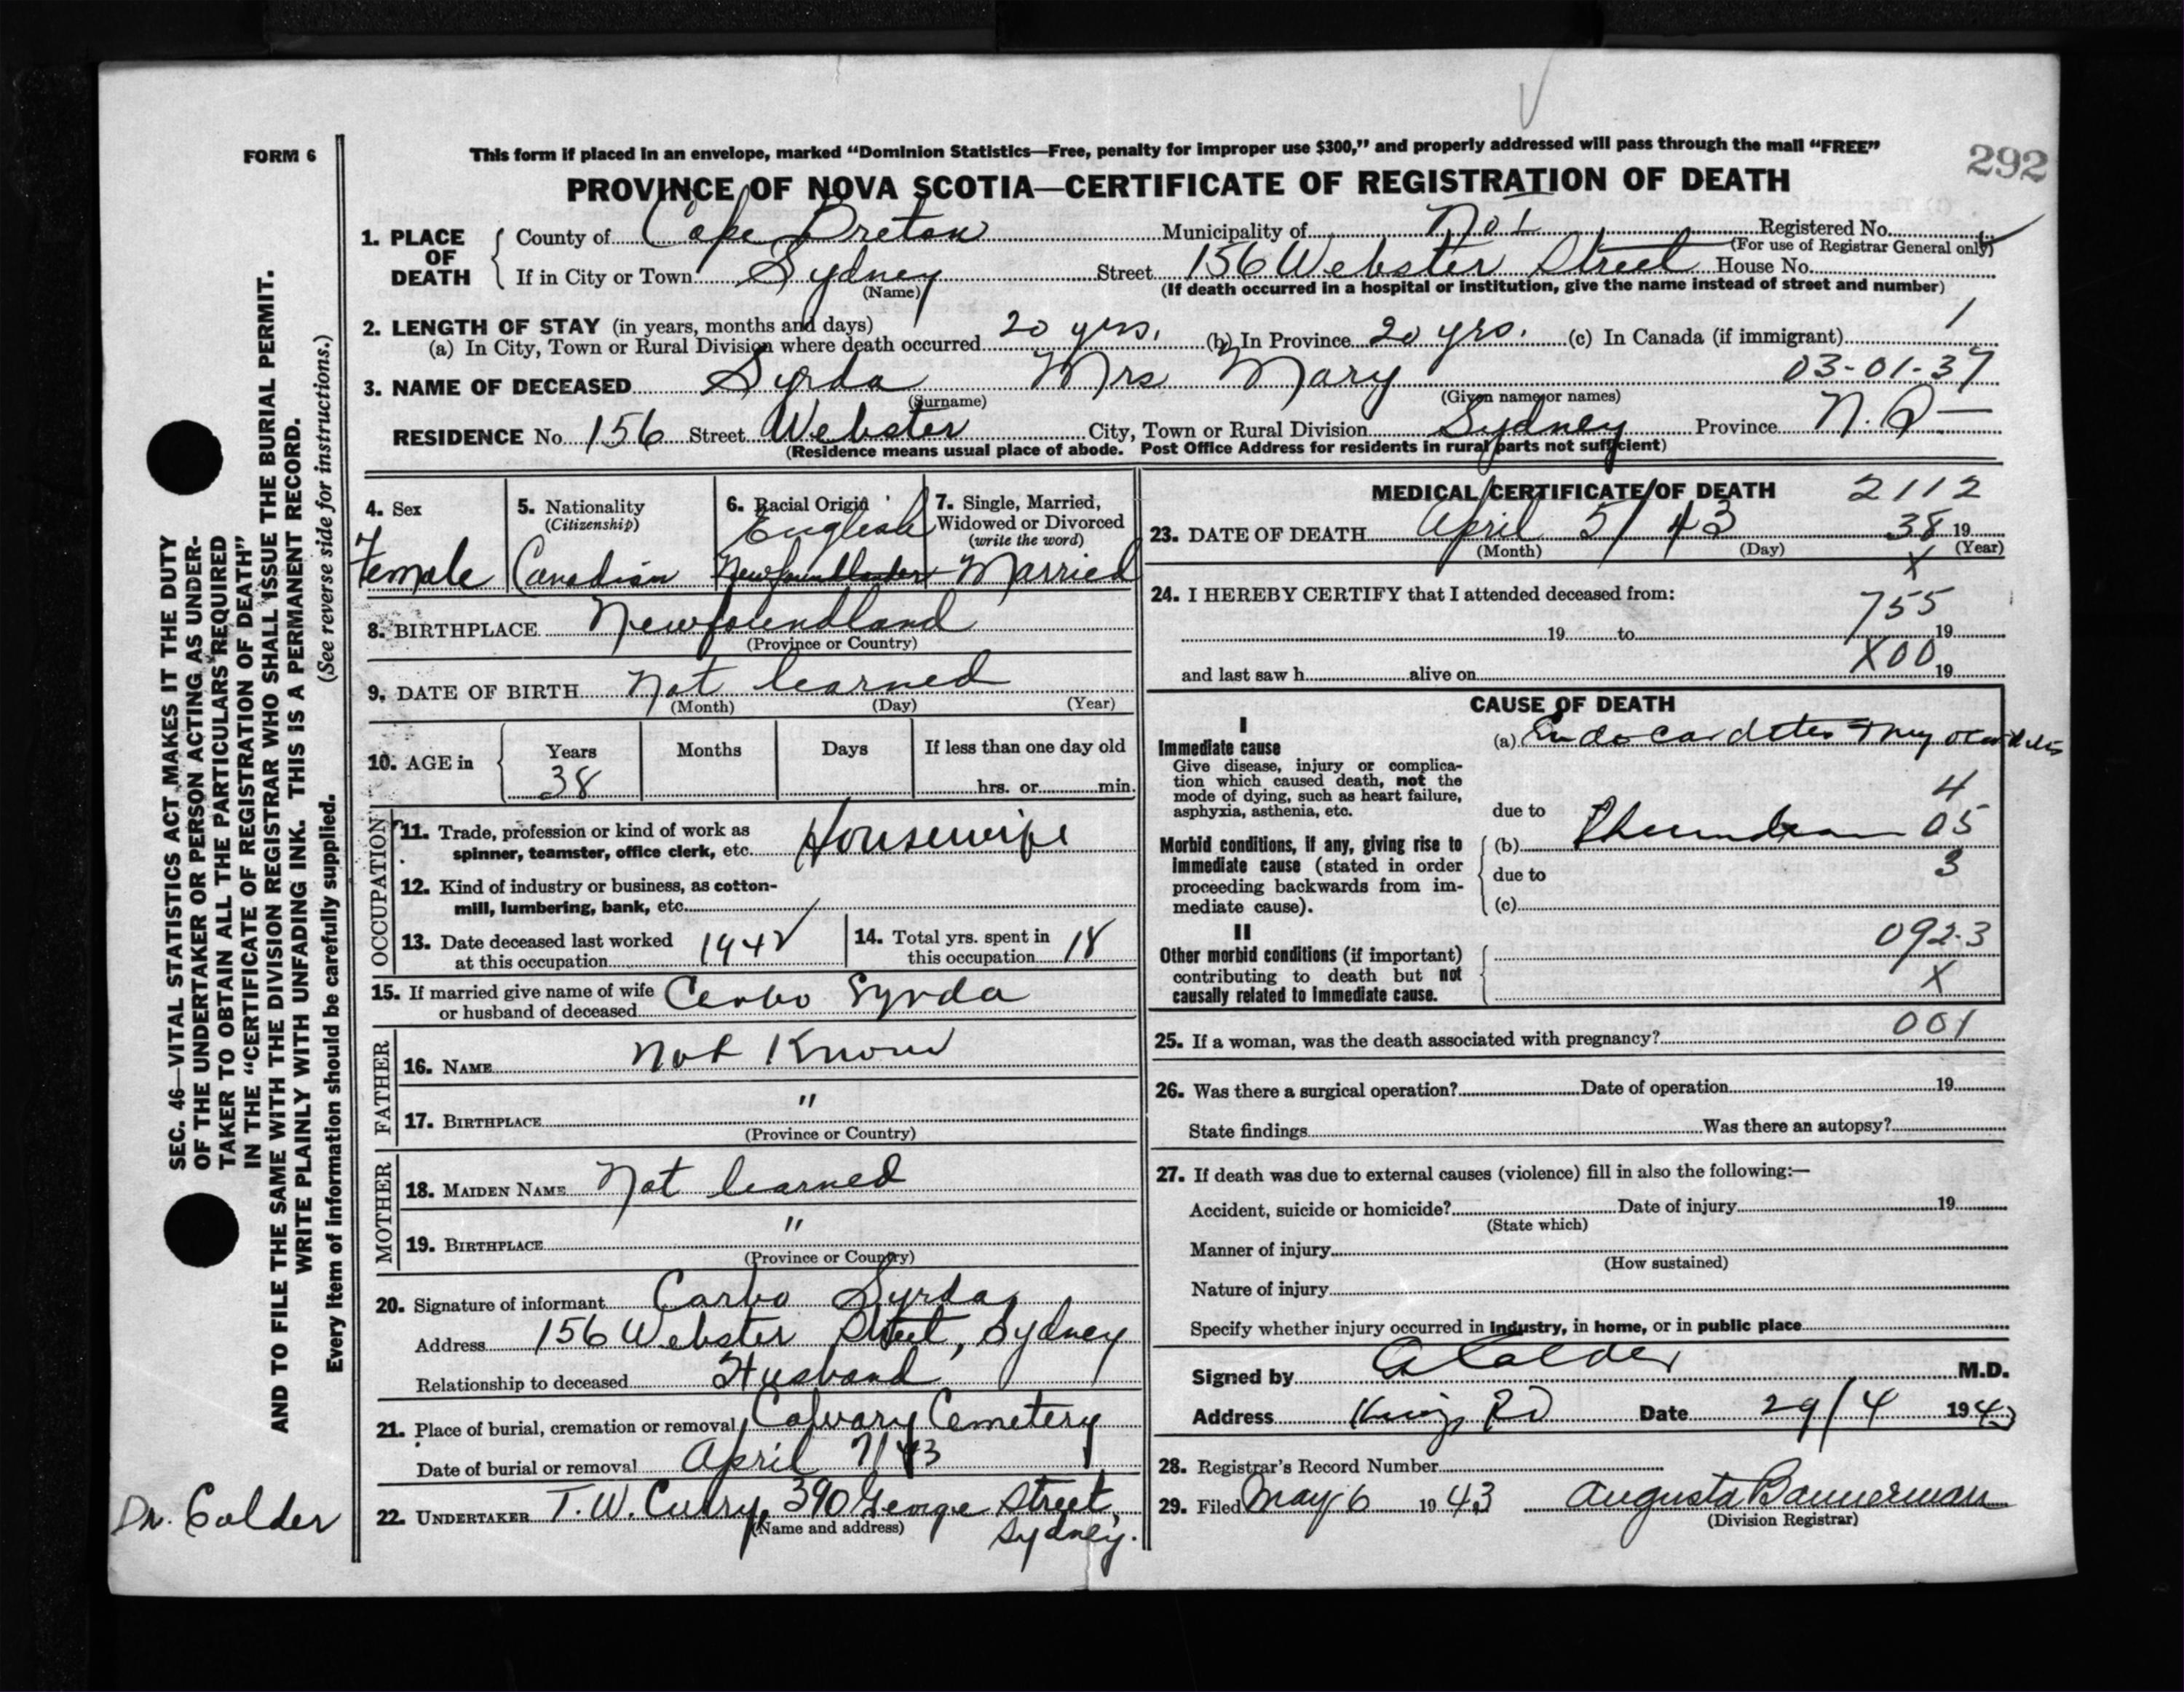 FORM 6
This form if placed in an envelope, marked “Dominion Statistics—Free, penalty for improper use $300,” and properly addressed will pass through the mail “FREE”
292
PROVINCE OF NOVA SCOTIA—CERTIFICATE OF REGISTRATION OF DEATH
1. PLACE OF DEATH
County of Cape Breton Municipality of No 1 Registered No.
(For use of Registrar General only)
If in City or Town Sydney Street 156 Webster Street House No.
(Name) (If death occurred in a hospital or institution, give the name instead of street and number)
2. LENGTH OF STAY (in years, months and days)
(a) In City, Town or Rural Division where death occurred 20 yrs. (b) In Province 20 yrs. (c) In Canada (if immigrant) 1
3. NAME OF DECEASED Syrda Mrs Mary 03-01-37
(Surname) (Given name or names)
RESIDENCE No. 156 Street Webster City, Town or Rural Division Sydney Province N.S—
(Residence means usual place of abode. Post Office Address for residents in rural parts not sufficient)
4. Sex
Female
5. Nationality
(Citizenship)
Canadian
6. Racial Origin
English
Newfoundlander
7. Single, Married, Widowed or Divorced
(write the word)
Married
8. BIRTHPLACE Newfoundland
(Province or Country)
9. DATE OF BIRTH Not learned
(Month) (Day) (Year)
10. AGE in
Years Months Days If less than one day old
38 hrs. or min.
OCCUPATION
11. Trade, profession or kind of work as
spinner, teamster, office clerk, etc. Housewife
12. Kind of industry or business, as cotton-
mill, lumbering, bank, etc.
13. Date deceased last worked
at this occupation 1942
14. Total yrs. spent in
this occupation 18
15. If married give name of wife
or husband of deceased Carbo Syrda
FATHER
16. NAME Not Known
17. BIRTHPLACE "
(Province or Country)
MOTHER
18. MAIDEN NAME Not learned
19. BIRTHPLACE "
(Province or Country)
20. Signature of informant Carbo Syrda
Address 156 Webster Street, Sydney
Relationship to deceased Husband
21. Place of burial, cremation or removal Calvary Cemetery
Date of burial or removal April 7/43
22. UNDERTAKER T. W. Curry, 390 George Street,
(Name and address) Sydney.
MEDICAL CERTIFICATE OF DEATH 2112
23. DATE OF DEATH April 5/43 38 19
(Month) (Day) (Year)
X
24. I HEREBY CERTIFY that I attended deceased from:
755
19 to 19
and last saw h alive on X00 19
CAUSE OF DEATH
I
Immediate cause
Give disease, injury or complica-
tion which caused death, not the
mode of dying, such as heart failure,
asphyxia, asthenia, etc.
(a) Endocarditis + myocarditis
4
due to
Morbid conditions, if any, giving rise to
immediate cause (stated in order
proceeding backwards from im-
mediate cause).
(b) 05
due to 3
(c)
II
Other morbid conditions (if important)
contributing to death but not
causally related to immediate cause.
092.3
X
25. If a woman, was the death associated with pregnancy? 001
26. Was there a surgical operation? Date of operation 19
State findings Was there an autopsy?
27. If death was due to external causes (violence) fill in also the following:—
Accident, suicide or homicide? Date of injury 19
(State which)
Manner of injury
(How sustained)
Nature of injury
Specify whether injury occurred in industry, in home, or in public place
Signed by A Calder M.D.
Address Kings Rd Date 29/4 1943
28. Registrar's Record Number
29. Filed May 6 1943 Augusta Bannerman
(Division Registrar)
SEC. 46—VITAL STATISTICS ACT MAKES IT THE DUTY
OF THE UNDERTAKER OR PERSON ACTING AS UNDER-
TAKER TO OBTAIN ALL THE PARTICULARS REQUIRED
IN THE “CERTIFICATE OF REGISTRATION OF DEATH”
AND TO FILE THE SAME WITH THE DIVISION REGISTRAR WHO SHALL ISSUE THE BURIAL PERMIT.
WRITE PLAINLY WITH UNFADING INK. THIS IS A PERMANENT RECORD.
Every item of information should be carefully supplied. (See reverse side for instructions.)
Dr. Calder